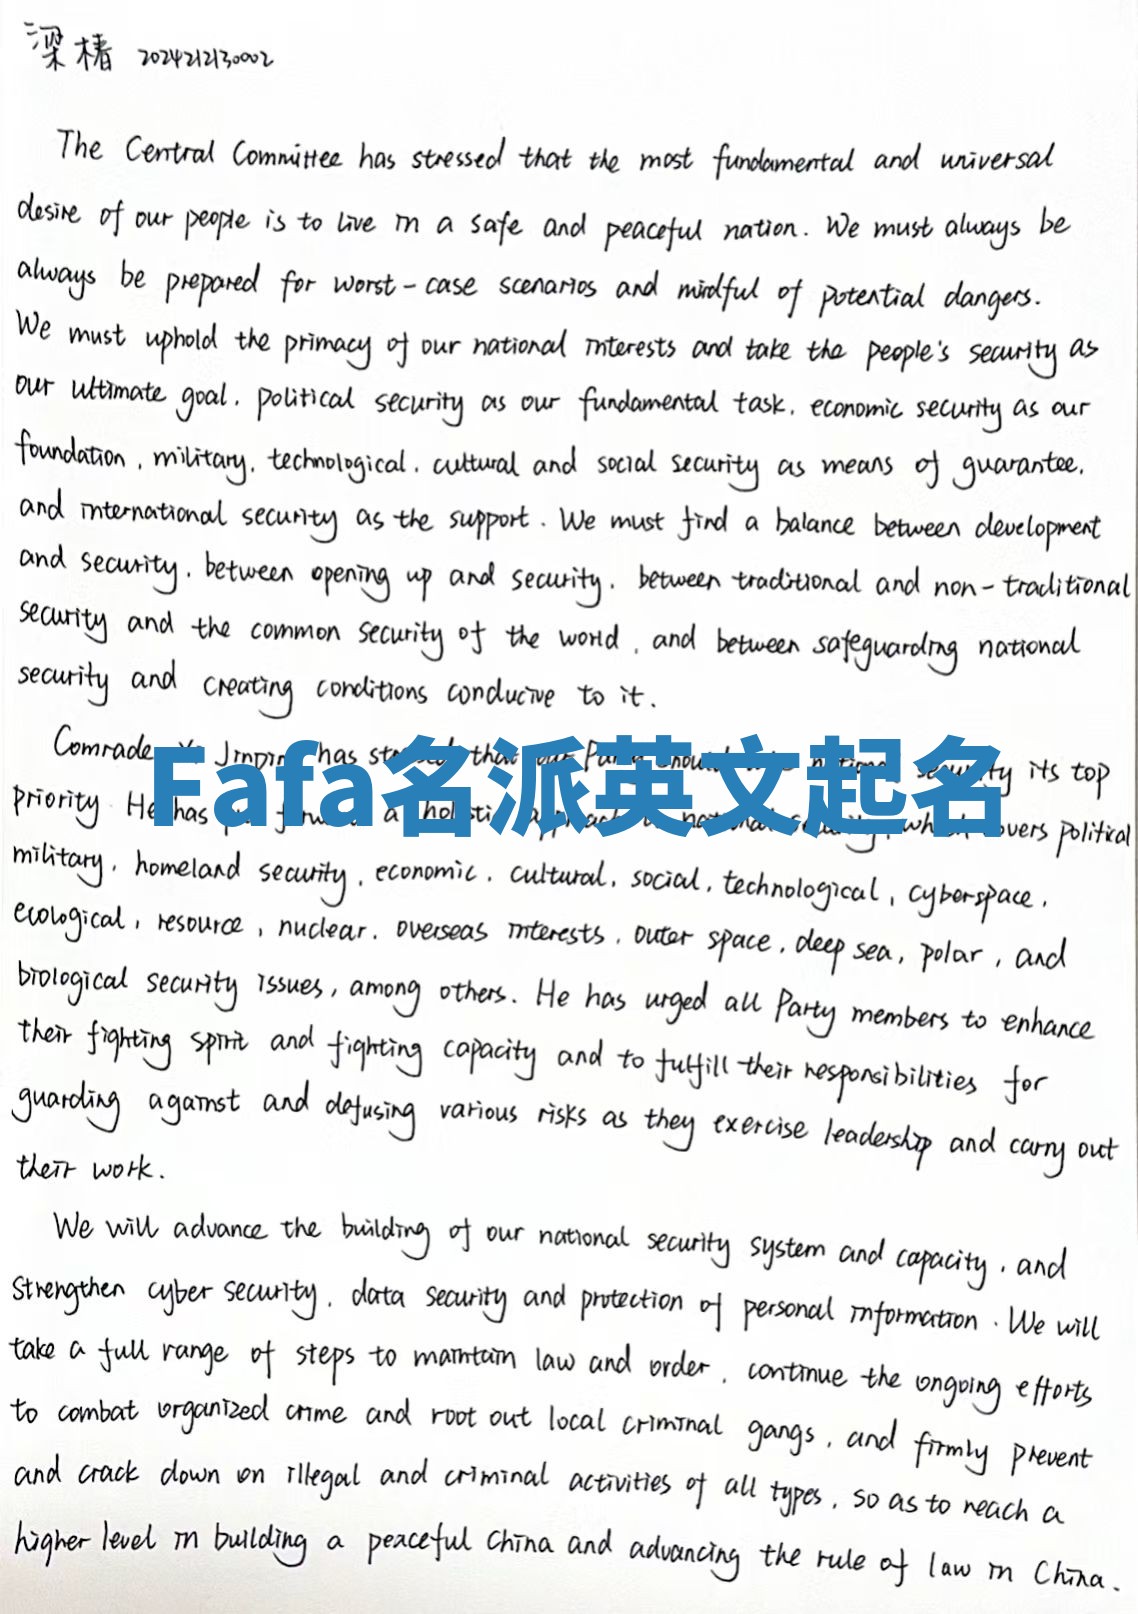 梁椿 2024212130002
The Central Committee has stressed that the most fundamental and universal
desire of our people is to live in a safe and peaceful nation. We must always be
always be prepared for worst-case scenarios and mindful of potential dangers.
We must uphold the primacy of our national interests and take the people's security as
our ultimate goal, political security as our fundamental task, economic security as our
foundation, military, technological, cultural and social security as means of guarantee,
and international security as the support. We must find a balance between development
and security, between opening up and security, between traditional and non-traditional
security and the common security of the world, and between safeguarding national
security and creating conditions conducive to it.
Comrade Xi Jinping has stressed that our Party should make national security its top
Fafa名派英文起名
priority. He has put forward a holistic approach to national security, which covers political
military, homeland security, economic, cultural, social, technological, cyberspace,
ecological, resource, nuclear, overseas interests, outer space, deep sea, polar, and
biological security issues, among others. He has urged all Party members to enhance
their fighting spirit and fighting capacity and to fulfill their responsibilities for
guarding against and defusing various risks as they exercise leadership and carry out
their work.
We will advance the building of our national security system and capacity, and
strengthen cyber security, data security and protection of personal information. We will
take a full range of steps to maintain law and order, continue the ongoing efforts
to combat organized crime and root out local criminal gangs, and firmly prevent
and crack down on illegal and criminal activities of all types, so as to reach a
higher level in building a peaceful China and advancing the rule of law in China.